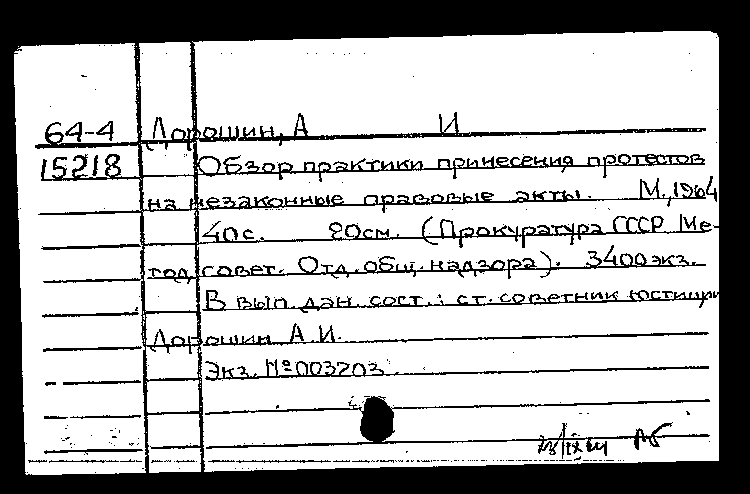 64-4 Дорошин, А И
15218 Обзор практики принесения протестов
на незаконные правовые акты. М., 1964
40с. 20см. (Прокуратура СССР Ме-
тод. совет. Отд. общ. надзора). 3400 экз.
В вып. дан. сост.: ст. советник юстиции
Дорошин А.И.
Экз. №003203
АБ